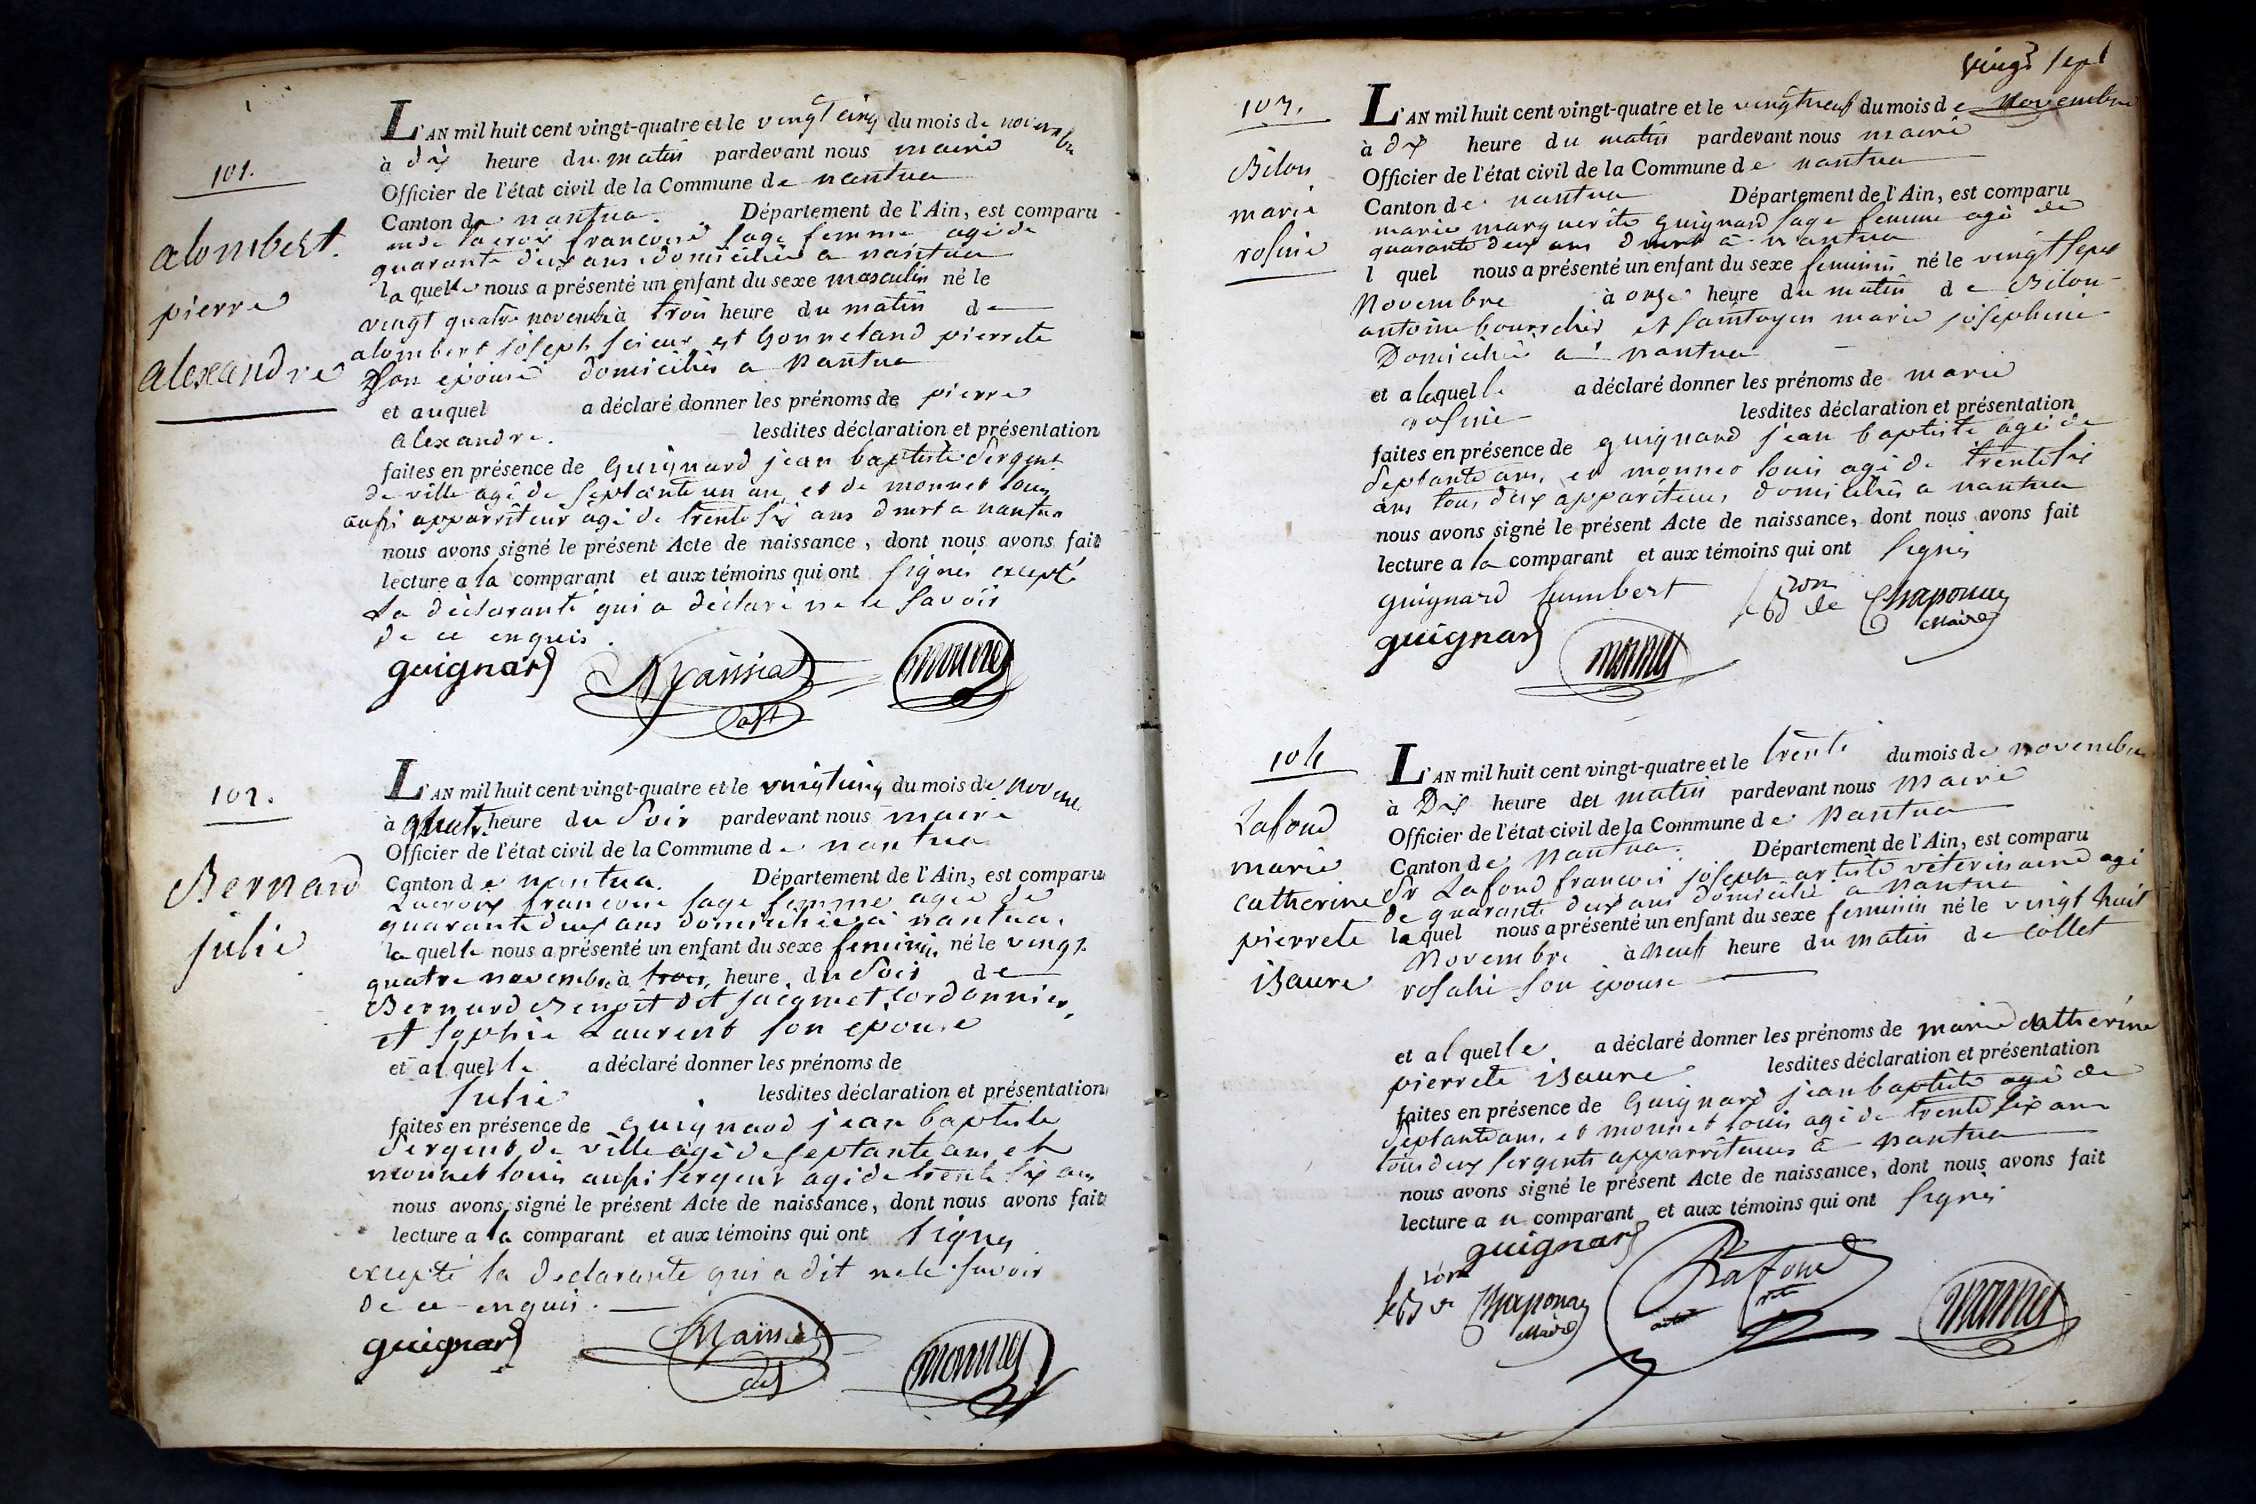 101.
alombert.
pierre
alexandre
L'AN mil huit cent vingt-quatre et le vingt cinq du mois de novembre
à dix heure du matin pardevant nous maire
Officier de l'état civil de la Commune de nantua
Canton de nantua. Département de l'Ain, est comparu
lacroix francoise sage femme agé de
quarante deux ans domiciliée a nantua
la quelle nous a présenté un enfant du sexe masculin né le
vingt quatre novembre à trois heure du matin de
alombert joseph scieur et Gonneland pierrete
son epouse domiciliés a nantua
et auquel a déclaré donner les prénoms de pierre
alexandre. lesdites déclaration et présentation
faites en présence de Guignard jean baptiste Sergent
de ville agé de septante un an et de monnet louis
aussi apparriteur agé de trente six ans dmrt a nantua
nous avons signé le présent Acte de naissance, dont nous avons fait
lecture a la comparant et aux témoins qui ont signés excepté
La déclarante qui a déclaré ne le savoir
de ce enquis.
guignard monnet
102.
Bernard
julie
L'AN mil huit cent vingt-quatre et le vingtcinq du mois de novem
à quatre heure du Soir pardevant nous maire
Officier de l'état civil de la Commune de nantua
Canton de nantua. Département de l'Ain, est comparu
Lacroix francoise sage femme agée de
quarante deux ans domiciliée à nantua.
la quelle nous a présenté un enfant du sexe feminin né le vingt
quatre novembre à trois heure du Soir de
Bernard Benoit dit jacquet Cordonnier,
et Sophie Laurent son epouse
et a l quelle a déclaré donner les prénoms de
Julie lesdites déclaration et présentation
faites en présence de Guignard jean baptiste
Sergent de ville agé de septante ans et
monnet louis aussi sergent agé de trente six ans
nous avons signé le présent Acte de naissance, dont nous avons fait
lecture a la comparant et aux témoins qui ont signés
excepté la declarante qui a dit ne le savoir
de ce enquis.
guignard monnet
vingt sept
103.
Bilon
marie
rosine
L'AN mil huit cent vingt-quatre et le vingtneuf du mois de Novembre
à dix heure du matin pardevant nous maire
Officier de l'état civil de la Commune de nantua
Canton de nantua Département de l'Ain, est comparu
marie marguerite guignard sage femme agé de
quarante deux ans dmrt à nantua
l quel nous a présenté un enfant du sexe feminin né le vingt sept
Novembre à onze heure du matin de Bilon
antoine et marie josephine
Domiciliés a nantua
et a laquelle a déclaré donner les prénoms de marie
rosine lesdites déclaration et présentation
faites en présence de guignard jean baptiste agé de
septante ans, et monnet louis agé de trente six
ans tous deux appariteurs domiciliés a nantua
nous avons signé le présent Acte de naissance, dont nous avons fait
lecture a la comparant et aux témoins qui ont signés
guignard humbert le Bon de Chaponay
Maire
guignard monnet
104
Lafond
marie
catherine
pierrete
isaure
L'AN mil huit cent vingt-quatre et le trente du mois de novembre
à Dix heure du matin pardevant nous Maire
Officier de l'état civil de la Commune de Nantua
Canton de Nantua. Département de l'Ain, est comparu
Sr Lafond francois joseph artiste veterinaire agé
de quarante deux ans domicilié a nantua
lequel nous a présenté un enfant du sexe feminin né le vingt huit
Novembre à neuf heure du matin de Collet
rosalie son epouse
et a l quelle a déclaré donner les prénoms de marie catherine
pierrete isaure lesdites déclaration et présentation
faites en présence de Guignard jean baptiste agé de
septante ans, et monnet louis agé de trente six ans
tous deux sergents apparriteurs à nantua
nous avons signé le présent Acte de naissance, dont nous avons fait
lecture a u comparant et aux témoins qui ont signés
guignard
le Bon de Chaponay Lafond monnet
Maire